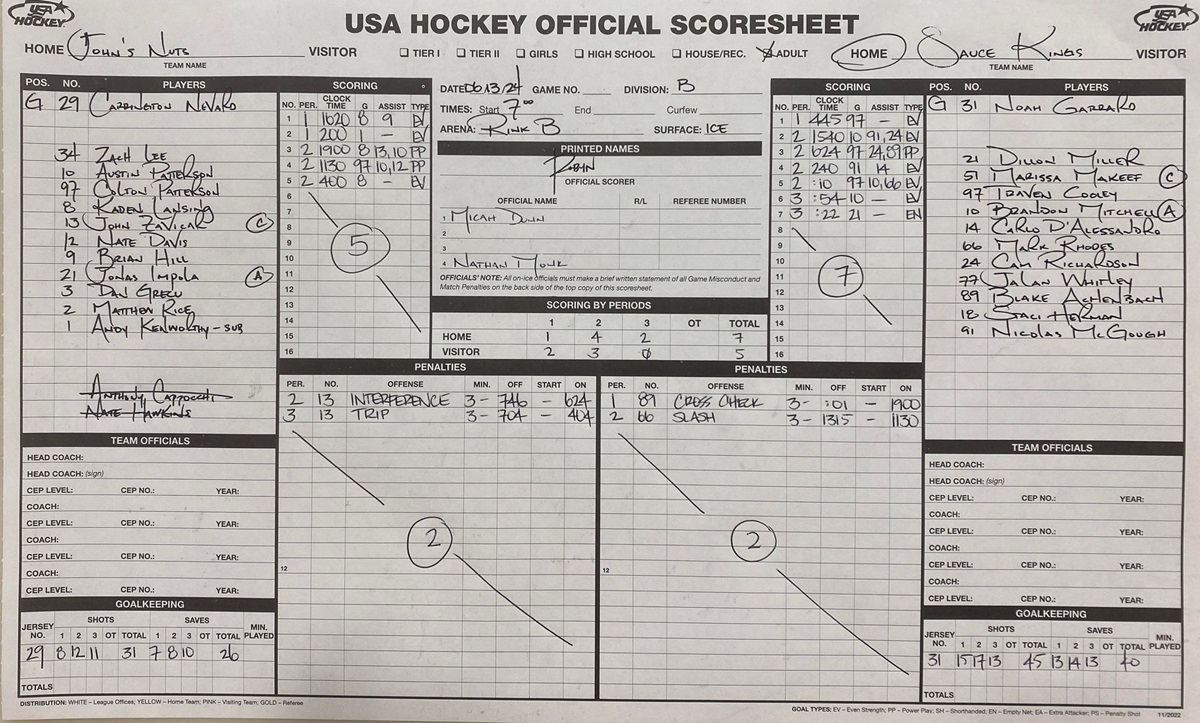 USA HOCKEY
USA HOCKEY OFFICIAL SCORESHEET
USA HOCKEY
HOME John's Nuts VISITOR ☐ TIER I ☐ TIER II ☐ GIRLS ☐ HIGH SCHOOL ☐ HOUSE/REC. ☒ ADULT HOME Sauce Kings VISITOR
TEAM NAME
TEAM NAME
POS. NO. PLAYERS
G 29 Carrington Nevard
34 Zach Lee
10 Austin Patterson
97 Colton Patterson
8 Kaden Lansing
13 John Zavicar C
12 Nate Davis
9 Brian Hill
21 Jonas Impola A
3 Dan Grecu
2 Matthew Rice
1 Andy Kenworthy - SUB
Anthony Cappocchi
Nate Hawkins
SCORING
NO. PER. CLOCK TIME G ASSIST TYPE
1 1 1620 8 9 EV
2 1 200 1 - EV
3 2 1900 8 13,10 PP
4 2 1130 97 10,12 PP
5 2 400 8 - EV
6
7
8
9
10
11
12
13
14
15
16
5
DATE 06/13/24 GAME NO. DIVISION: B
TIMES: Start 7:00 End Curfew
ARENA: Rink B SURFACE: ICE
PRINTED NAMES
Robyn
OFFICIAL SCORER
OFFICIAL NAME R/L REFEREE NUMBER
1 Micah Dunn
2
3
4 Nathan Monk
OFFICIALS' NOTE: All on-ice officials must make a brief written statement of all Game Misconduct and
Match Penalties on the back side of the top copy of this scoresheet.
SCORING BY PERIODS
1 2 3 OT TOTAL
HOME 1 4 2 7
VISITOR 2 3 0 5
SCORING
NO. PER. CLOCK TIME G ASSIST TYPE
1 1 445 97 - EV
2 2 1540 10 91,24 EV
3 2 624 97 24,89 PP
4 2 240 91 14 EV
5 2 :10 97 10,66 EV
6 3 :54 10 - EV
7 3 :22 21 - EN
8
9
10
11
12
13
14
15
16
7
POS. NO. PLAYERS
G 31 Noah Garrard
21 Dillon Miller
51 Marissa Makeef C
97 Traven Cooley
10 Brandon Mitchell A
14 Carlo D'Alessandro
66 Mark Rhodes
24 Cam Richardson
77 Jalan Whitley
89 Blake Achenbach
18 Staci Herman
91 Nicolas McGough
PENALTIES
PER. NO. OFFENSE MIN. OFF START ON
2 13 INTERFERENCE 3- 746 - 624
3 13 TRIP 3- 704 - 404
12
2
PENALTIES
PER. NO. OFFENSE MIN. OFF START ON
1 89 CROSS CHECK 3- :01 - 1900
2 66 SLASH 3- 1315 - 1130
12
2
TEAM OFFICIALS
HEAD COACH:
HEAD COACH: (sign)
CEP LEVEL: CEP NO.: YEAR:
COACH:
CEP LEVEL: CEP NO.: YEAR:
COACH:
CEP LEVEL: CEP NO.: YEAR:
COACH:
CEP LEVEL: CEP NO.: YEAR:
GOALKEEPING
JERSEY NO. SHOTS 1 2 3 OT TOTAL SAVES 1 2 3 OT TOTAL MIN. PLAYED
29 8 12 11 31 7 8 10 26
TOTALS
TEAM OFFICIALS
HEAD COACH:
HEAD COACH: (sign)
CEP LEVEL: CEP NO.: YEAR:
COACH:
CEP LEVEL: CEP NO.: YEAR:
COACH:
CEP LEVEL: CEP NO.: YEAR:
COACH:
CEP LEVEL: CEP NO.: YEAR:
GOALKEEPING
JERSEY NO. SHOTS 1 2 3 OT TOTAL SAVES 1 2 3 OT TOTAL MIN. PLAYED
31 15 17 13 45 13 14 13 40
TOTALS
DISTRIBUTION: WHITE – League Offices; YELLOW – Home Team; PINK – Visiting Team; GOLD – Referee
GOAL TYPES: EV – Even Strength; PP – Power Play; SH – Shorthanded; EN – Empty Net; EA – Extra Attacker; PS – Penalty Shot 11/2022